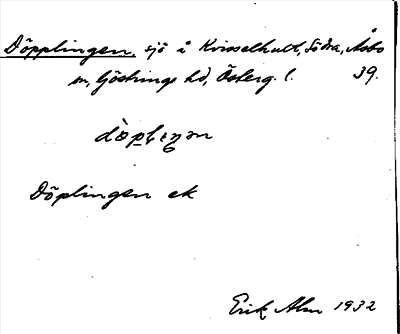 Döpplingen, sjö å Kvisselhult, Södra, Åsbo
sn, Göstrings hd, Österg. l. 39.
dö̀plɩŋən
Döplingen ek
Erik Alm 1932